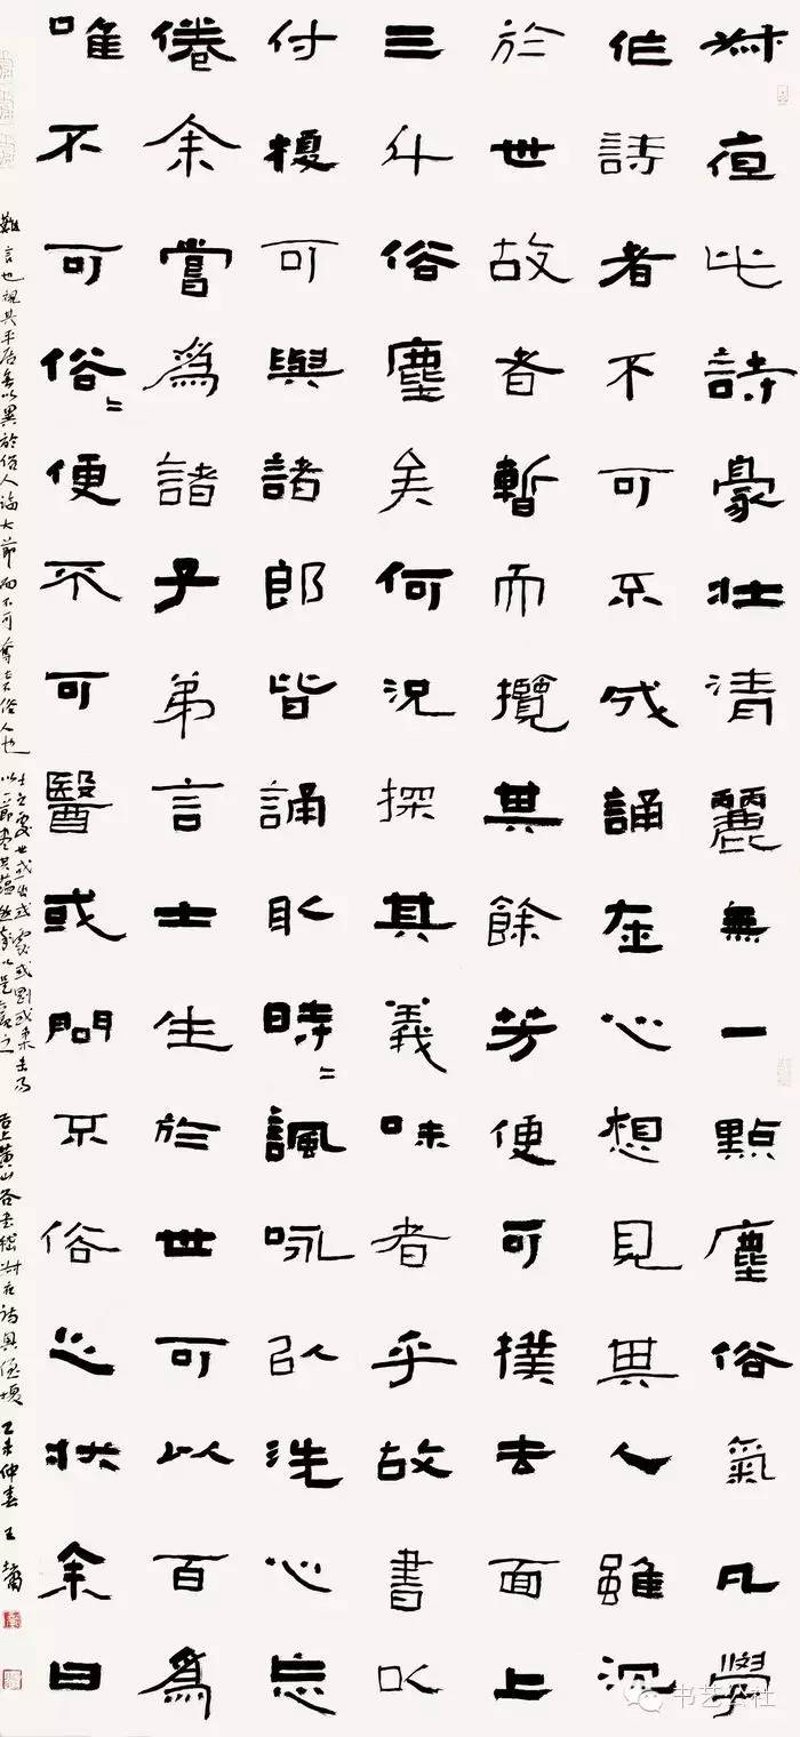 叔夜此詩豪壯清麗無一點塵俗氣凡學
作詩者不可不成誦在心想見其人雖沉
於世故者暫而攬其餘芳便可撲去面上
三斗俗塵矣何況探其義味者乎故書以
付榎可與諸郎皆誦取時〻諷咏以洗心忘
倦余嘗爲諸子弟言士生於世可以百爲
唯不可俗〻便不可醫或問不俗之狀余曰
難言也視其平居無以異於俗人臨大節而不可奪此不俗人也
士之處世或出或處或剛或柔未易
以一節盡其蘊然率以是觀之
右上黃山谷書嵇叔夜詩與侄榎 乙未仲春 王鏞
书艺公社